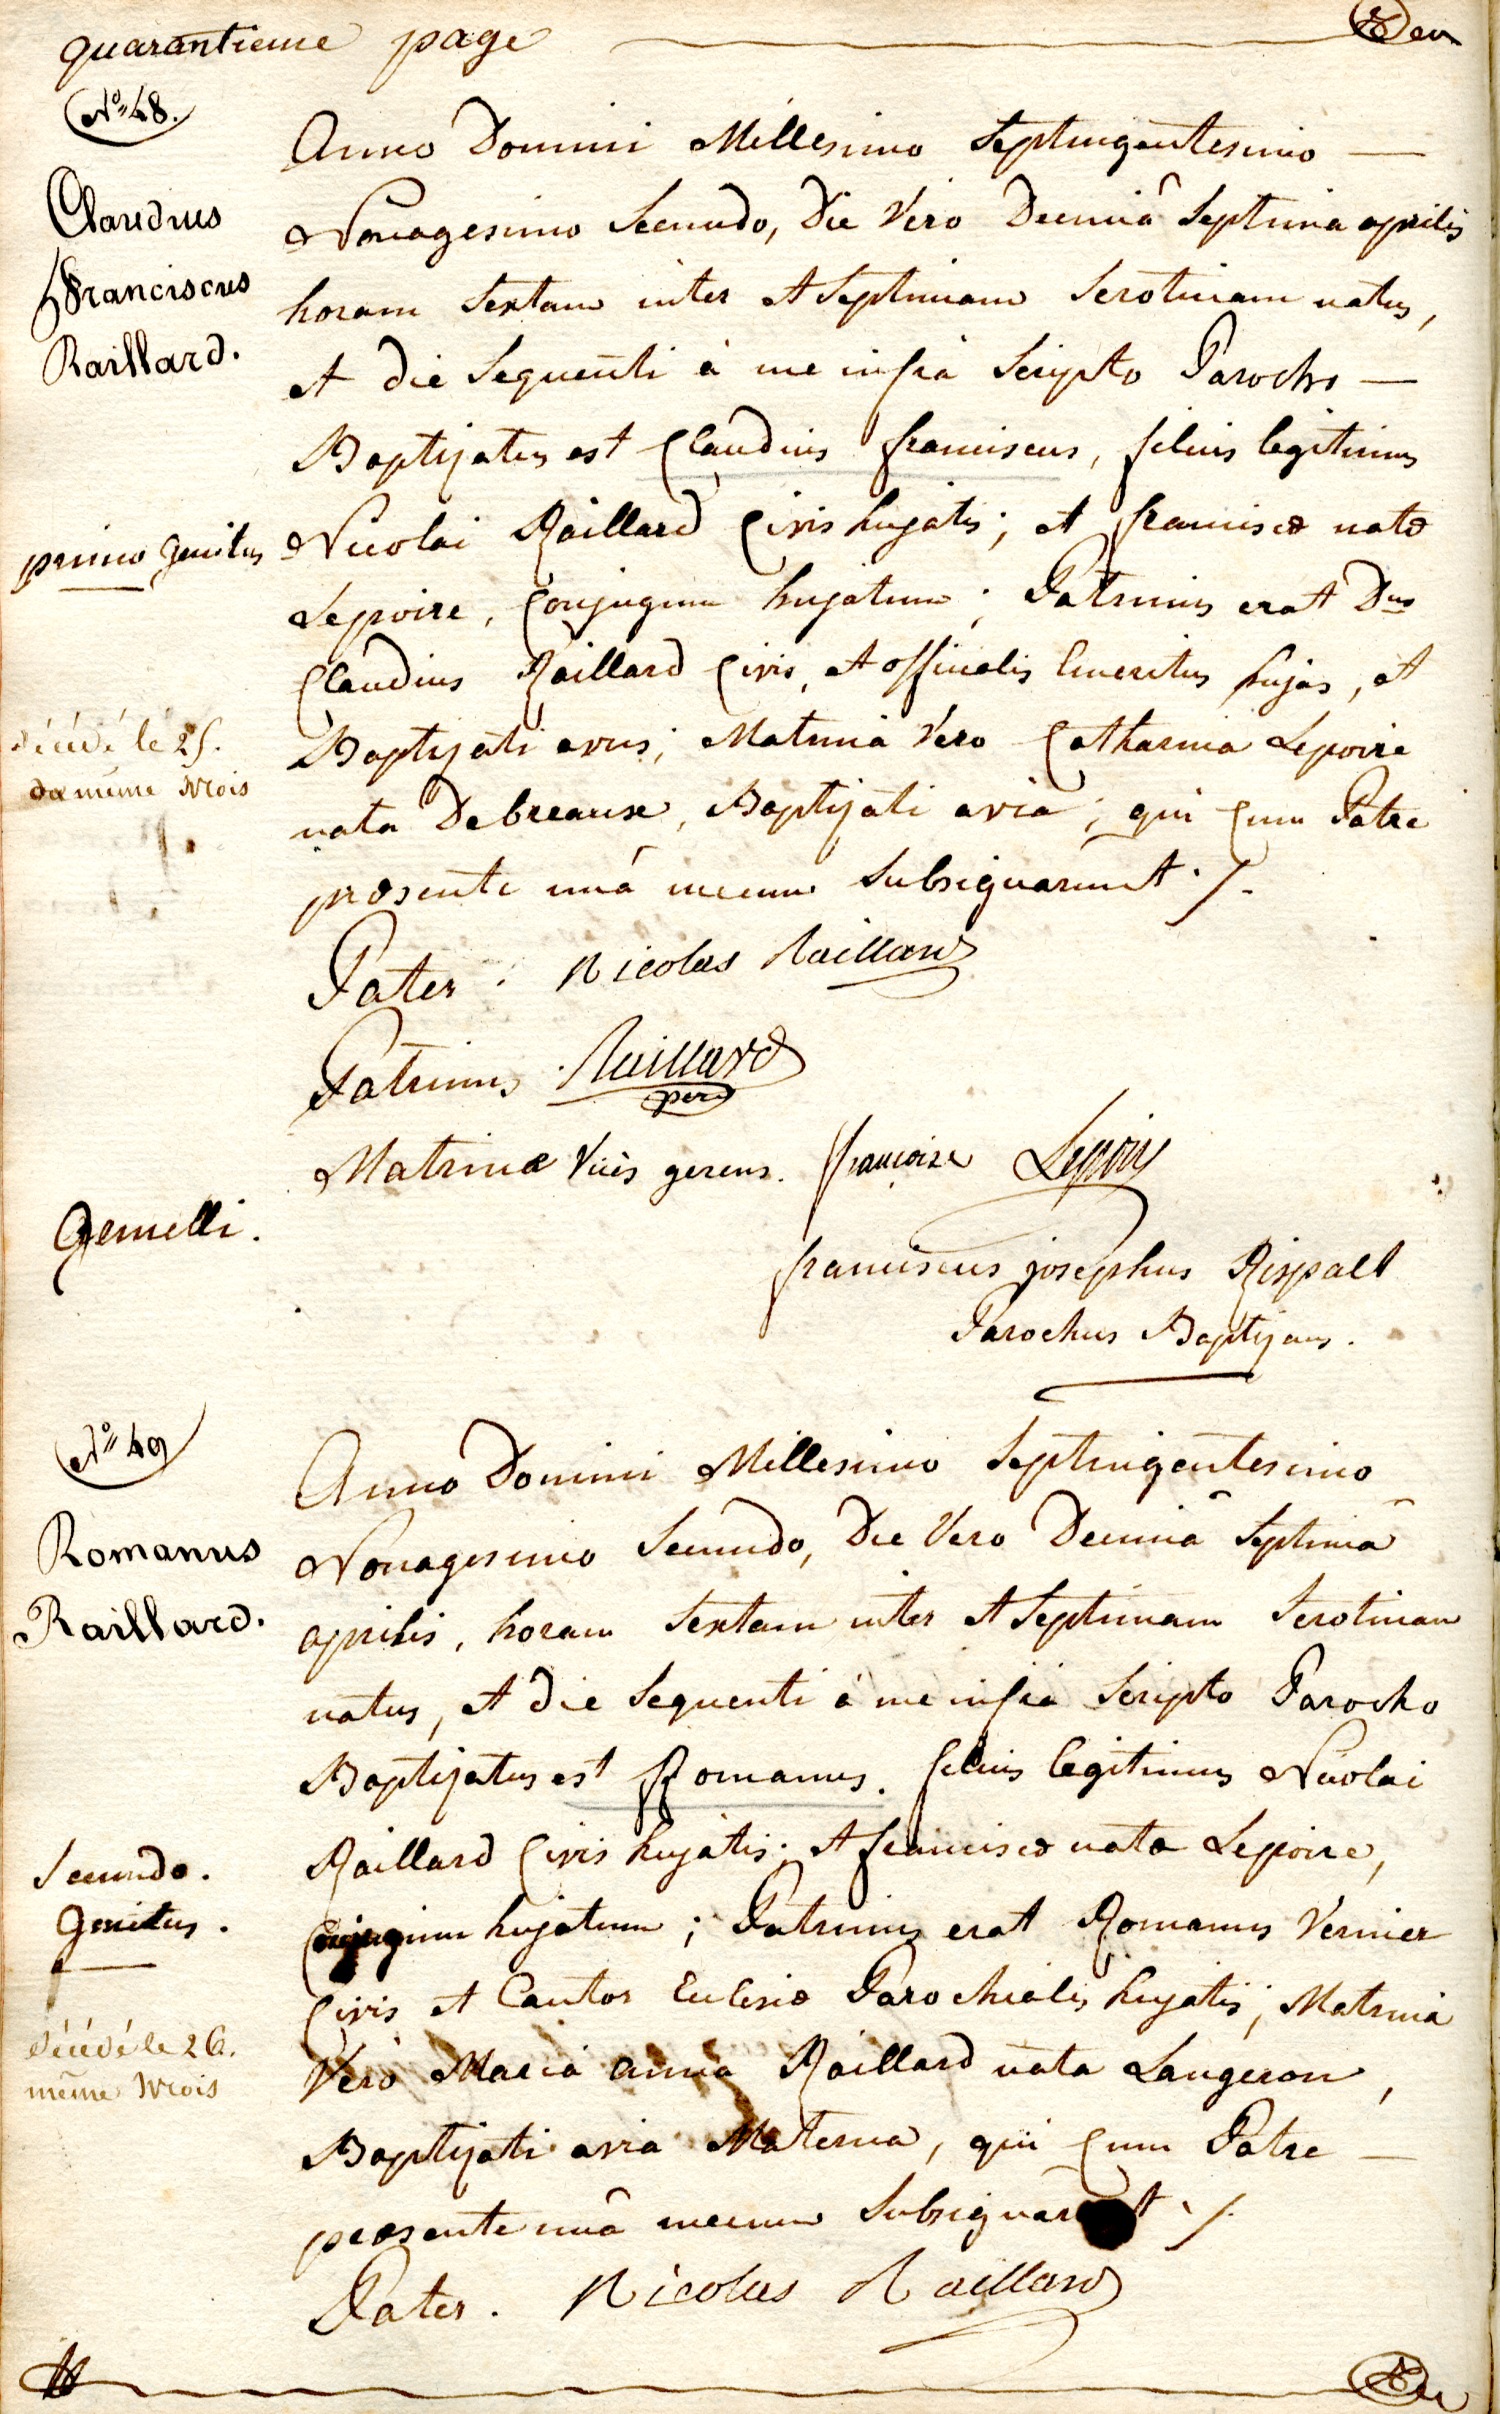 quarantieme page
N°= 48.
Claudius
Franciscus
Raillard.
Anno Domini Millesimo Septingentesimo —
Nonagesimo Secundo, Die Vero Decimâ Septima aprilis
horam Sextam inter et Septimam Serotinam natus,
et die Sequenti à me infrà Scripto Parocho —
Baptisatus est Claudius franciscus, filius legitimus
primo genitus
Nicolai Raillard Civis hujatis; et franciscæ natæ
Lepoire, Conjugum hujatum; Patrinus erat Dnus
Claudius Raillard Civis, et officialis Emeritus hujas, et
décédé le 25.
du même Mois
Baptisati avus; Matrina Vero Catharina Lepoire
nata Debreaux, Baptisati avia; qui Cum Patre
præsente unà mecum Subsignarunt ./.
Pater. Nicolas Raillard
Patrinus Raillard
pere
Matrinæ Vices gerens. françoise Lepoire
Gemelli.
franciscus josephus Rispalt
Parochus Baptisans.
N°= 49
Romanus
Raillard.
Anno Domini Millesimo Septingentesimo
Nonagesimo Secundo, Die Vero Decimâ Septimâ
aprilis, horam Sextam inter et Septimam Serotinam
natus, et die Sequenti à me infrà Scripto Parocho
Baptisatus est Romanus. filius legitimus Nicolai
Secundo.
Genitus.
Raillard Civis hujatis; et franciscæ natæ Lepoire,
Conjugum hujatum; Patrinus erat Romanus Vernier
Civis et Cantor Eclesiæ Parochialis hujatis; Matrina
décédé le 26.
même Mois
Vero Maria anna Raillard nata Langeron,
Baptisati avia Materna, qui Cum Patre —
præsente unâ mecum Subsignarunt ./.
Pater. Nicolas Raillard